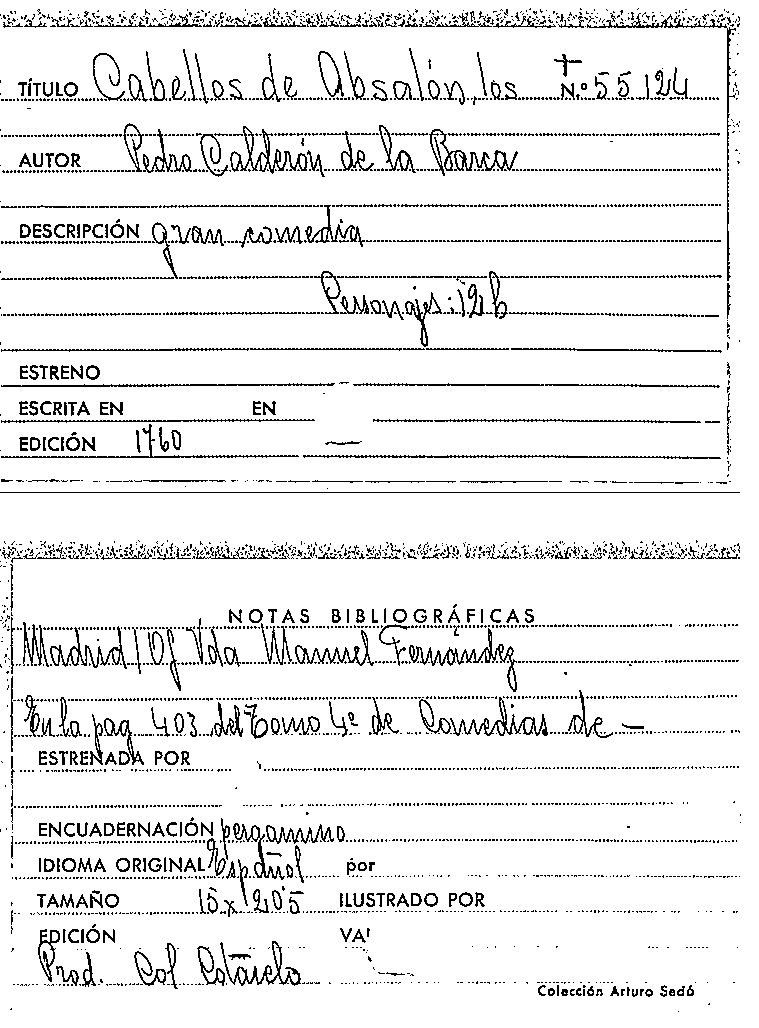 TÍTULO Cabellos de Absalón, los N.º 55124
AUTOR Pedro Calderón de la Barca
DESCRIPCIÓN gran comedia
Personajes: 12 b
ESTRENO
ESCRITA EN EN
EDICIÓN 1760
NOTAS BIBLIOGRÁFICAS
Madrid / Of Vda Manuel Fernández
En la pag 403 del Tomo 4º de Comedias de —
ESTRENADA POR
ENCUADERNACIÓN pergamino
IDIOMA ORIGINAL Español por
TAMAÑO 15 x 20'5 ILUSTRADO POR
EDICIÓN
Prod. Col Cotarelo
Colección Arturo Sedó